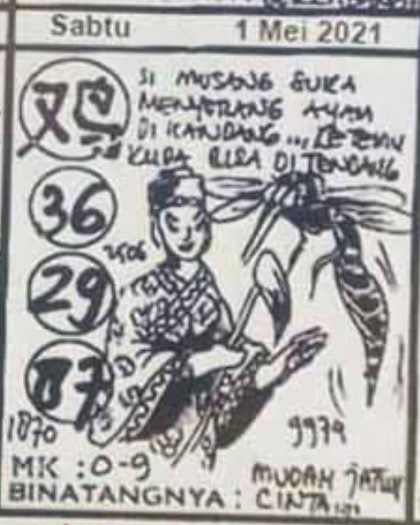 Sabtu 1 Mei 2021
鸡
SI MUSANG SUKA
MENYERANG AYAM
DI KANDANG...KETEMU
KUDA BISA DI TENDANG
36
2506
29
87
1870
9979
MK : 0-9
MUDAH JATUH
BINATANGNYA : CINTA...